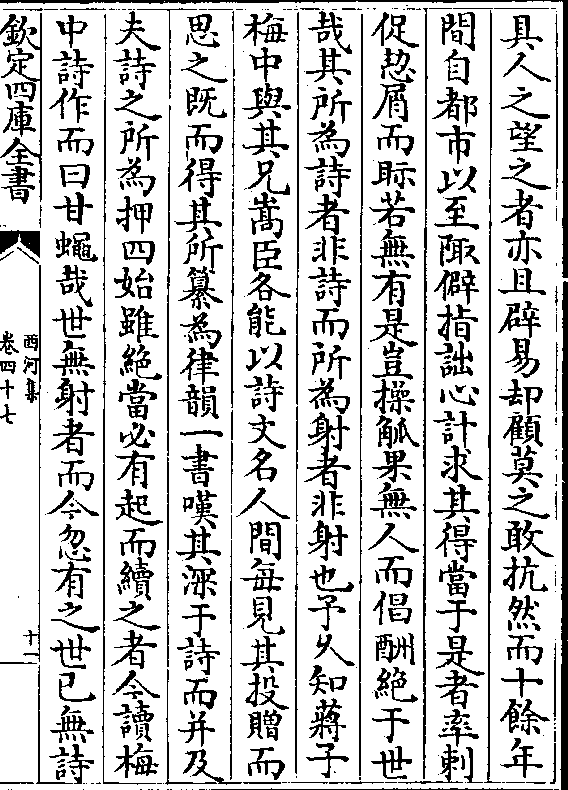 具人之望之者亦且辟易却顧莫之敢抗然而十餘年
間自都市以至陬僻指詘心計求其得當于是者率刺
促愸屑而眎若無有是豈操觚果無人而倡酬絕于世
哉其所為詩者非詩而所為射者非射也予乆知蔣子
梅中與其兄嵩臣各能以詩文名人間每見其投贈而
思之既而得其所纂為律韻一書嘆其深于詩而并及
夫詩之所為押四始雖絕當必有起而續之者今讀梅
中詩作而曰甘蠅哉世無射者而今忽有之世已無詩
欽定四庫全書
西河集
卷四十七
十一